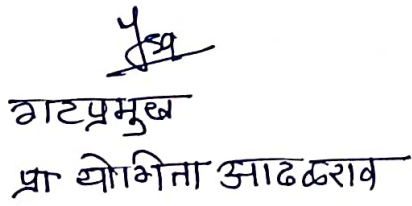 गटप्रमुख
प्रा योगिता आढळराव